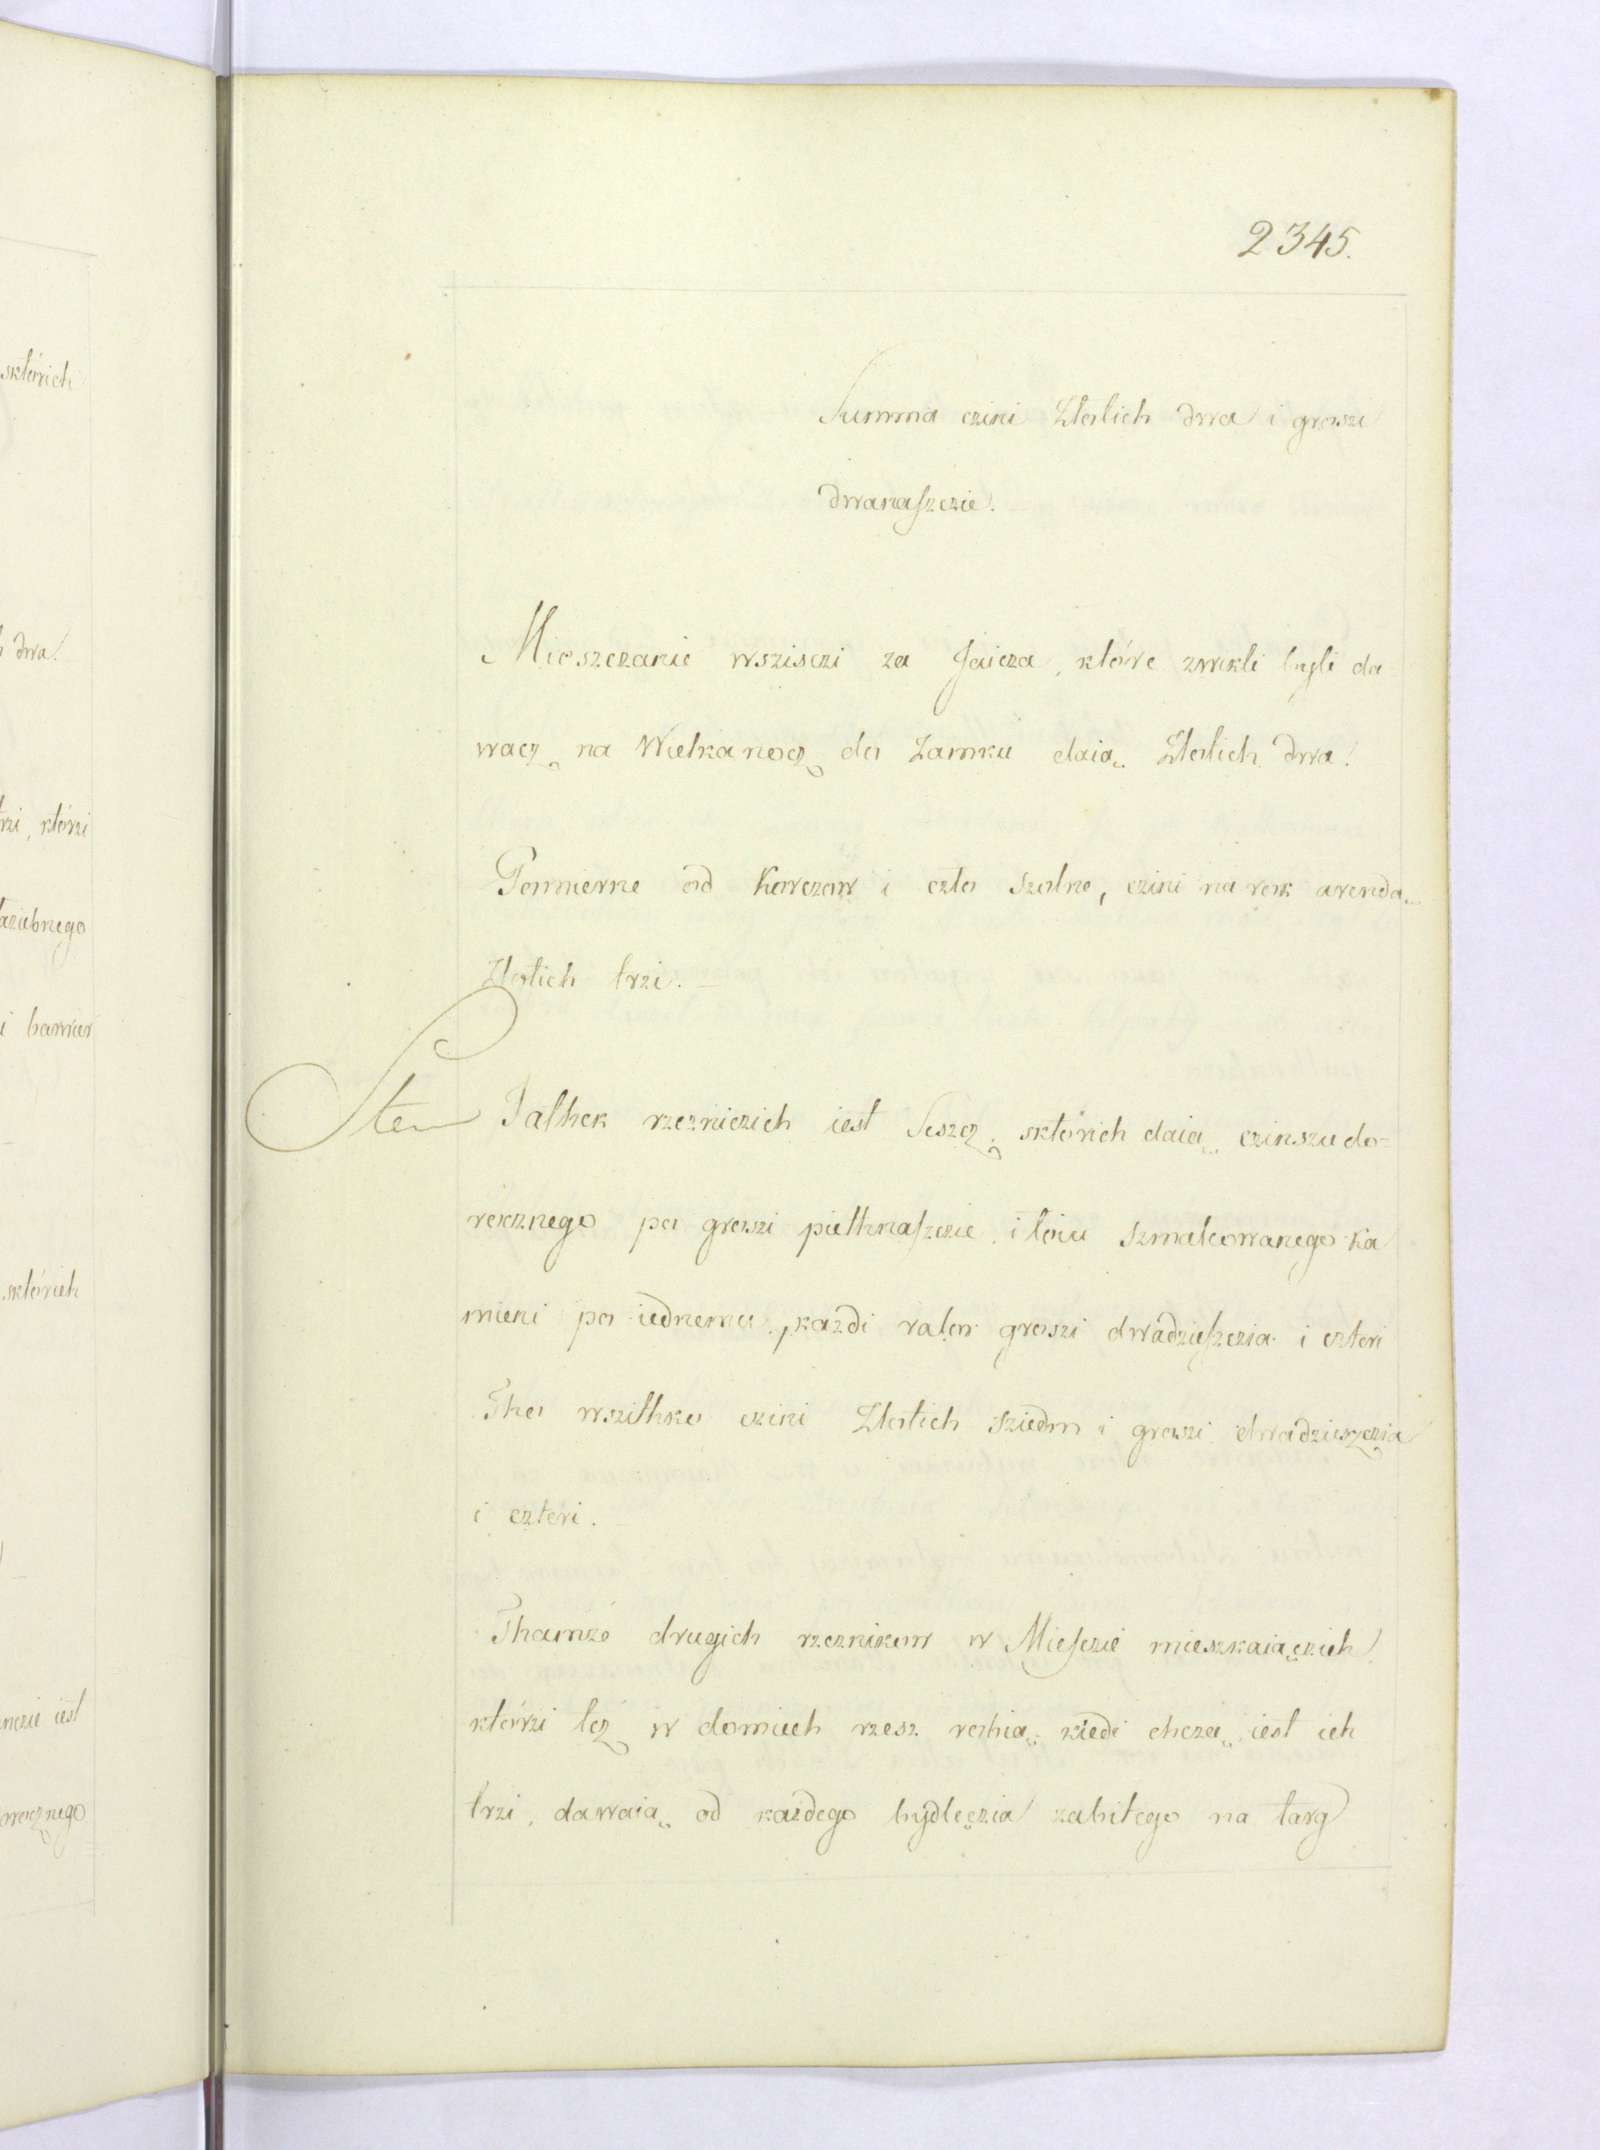 sktórich
h dwa.
trzi, którzi
łaziebnego
i barwier
sktórich
iest
2345.
Summa czini Złotich dwa i groszi
dwanaſzczie.
Mieszczanie wszisczi za Jaicza, które zwikli byli da
wacz na Wielkanocz do Zamku daią Złotich dwa.
Pomierne od Korczow i czło szolne, czini na rok arendą
Złotich trzi.
Item Jathek rzezniczich iest Seszcz, sktórich daią czinszu do-
rocznego po groszi piethnaſzczie, i łoiu szmalcowanego ka
mieni po iednemu, każdi ratow groszi dwadzieſzczia i czteri
Tho wszithko czini Złotich sziedm i groszi dwadzieszczia
i czteri.
Thamże drugich rzeznikow w Mieſczie mieszkaiączich
którzi też w domiech rzesz robią, kiedi chczą, iest ich
trzi, dawaią od każdego bydlęczia zabitego na targ